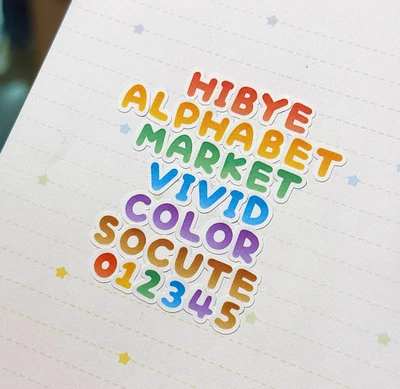 HIBYE
ALPHABET
MARKET
VIVID
COLOR
SOCUTE
012345